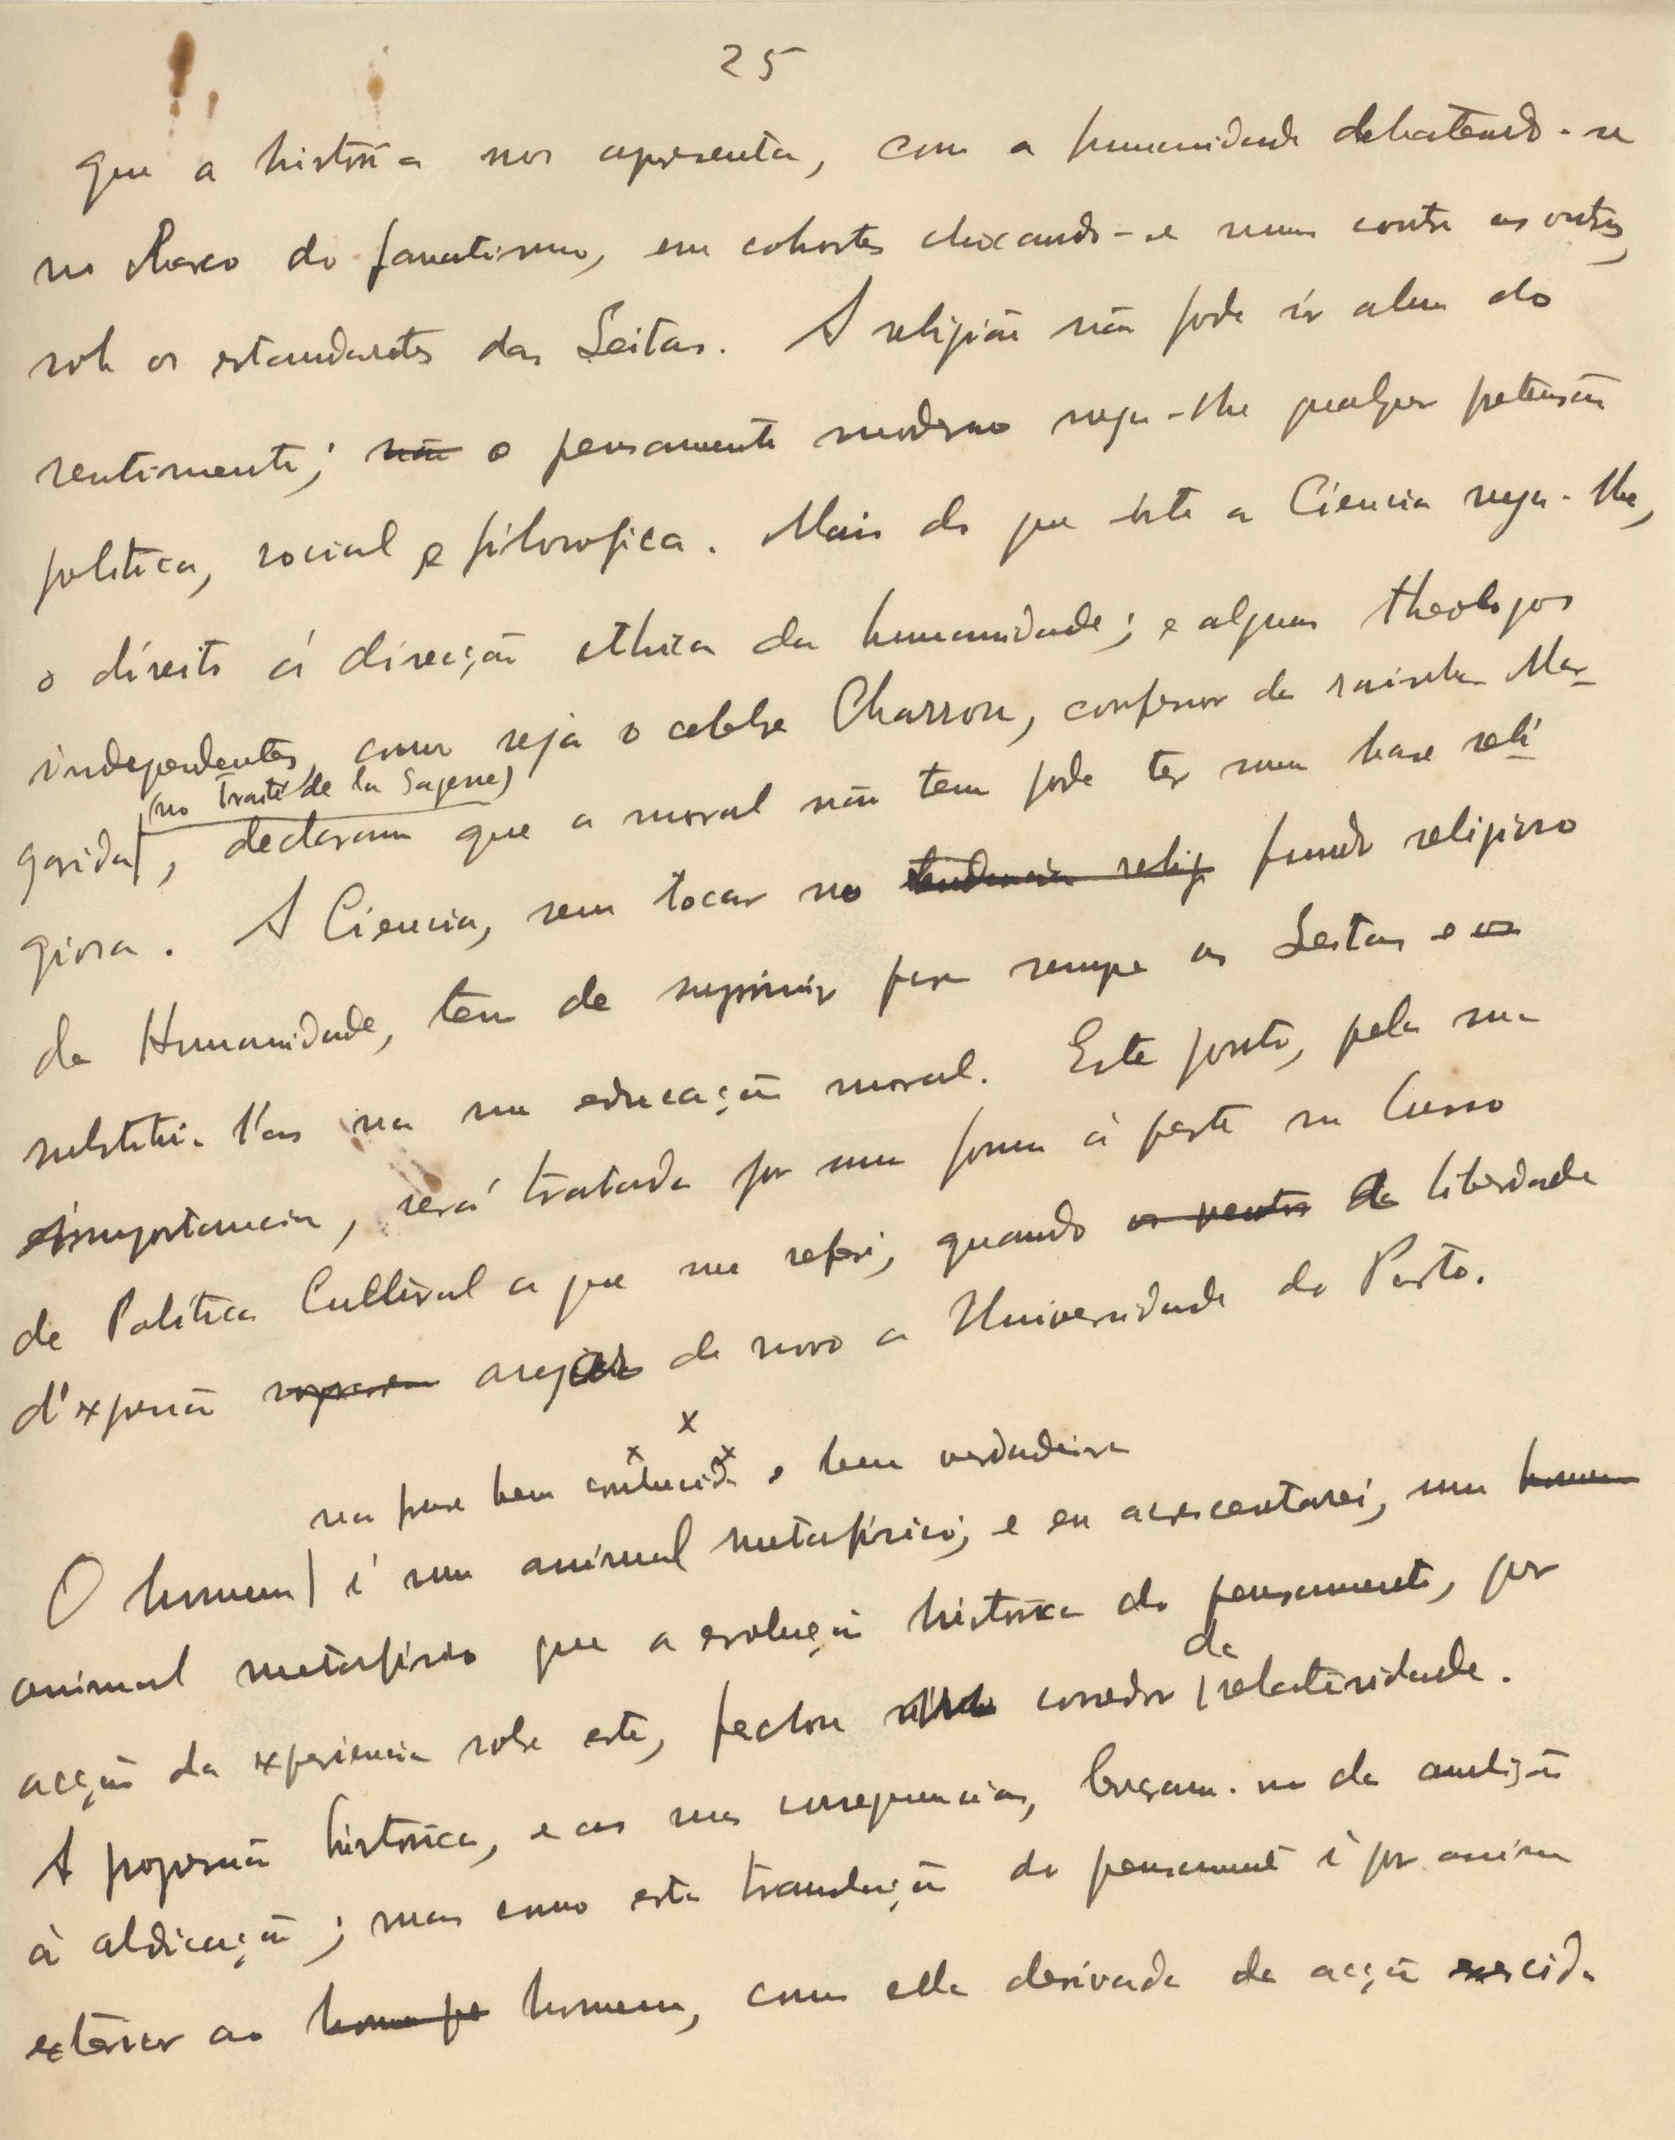 25
que a história nos apresenta, com a humanidade debatendo-se
no charco do fanatismo, em cohortes chocando-se umas contra as outras,
sob os estandartes das Seitas. A religião não pode ir alem do
sentimento; não o pensamento moderno nega-lhe qualquer pretensão
politica, social e filosofica. Mais do que isto a Ciencia nega-lhe,
o direito á direcção ethica da humanidade; e alguns theologos
independentes, como seja o celebre Charron, confessor da rainha Mar-
(no Traité de la Sagesse)
garida, declaram que a moral não tem pode ter uma base reli-
giosa. A Ciencia, sem tocar no tendencia relig fundo religioso
da Humanidade, tem de suprimir para sempre as Seitas e os
substitui-l'as na sua educação moral. Este ponto, pela sua
importancia, será tratado por uma forma á parte no Curso
de Politica Cultural a que me referi, quando os ventos da liberdade
d'expressão soprarem arejar de novo a Universidade do Porto.
x
x x
na frase bem conhecida e bem verdadeira
O homem é um animal metafisico; e eu acrescentarei, um homem
animal metafisico que a evolução historica do pensamento, por
de
acção da experiencia sobre este, fechou corredor relatividade.
A progressão historica, e as suas consequencias, forçam-no da ambição
á abdicação; mas como esta translação do pensamento é por assim
exterior ao homem, como ella derivada da acção exercida